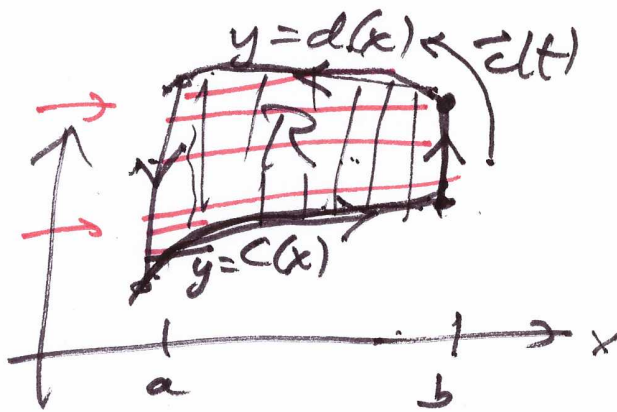 y=d(x)
c(t)
R
y=c(x)
x
a
b